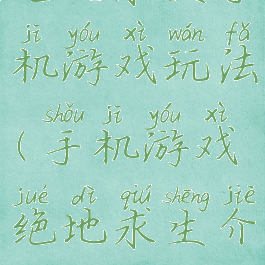 jī yóu xì wán fǎ
机游戏玩法
shǒu jī yóu xì
(手机游戏
jué dì qiú shēng jiè
绝地求生介